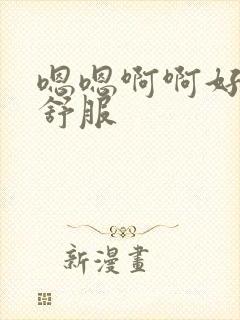 嗯嗯啊啊好
舒服
新漫畫